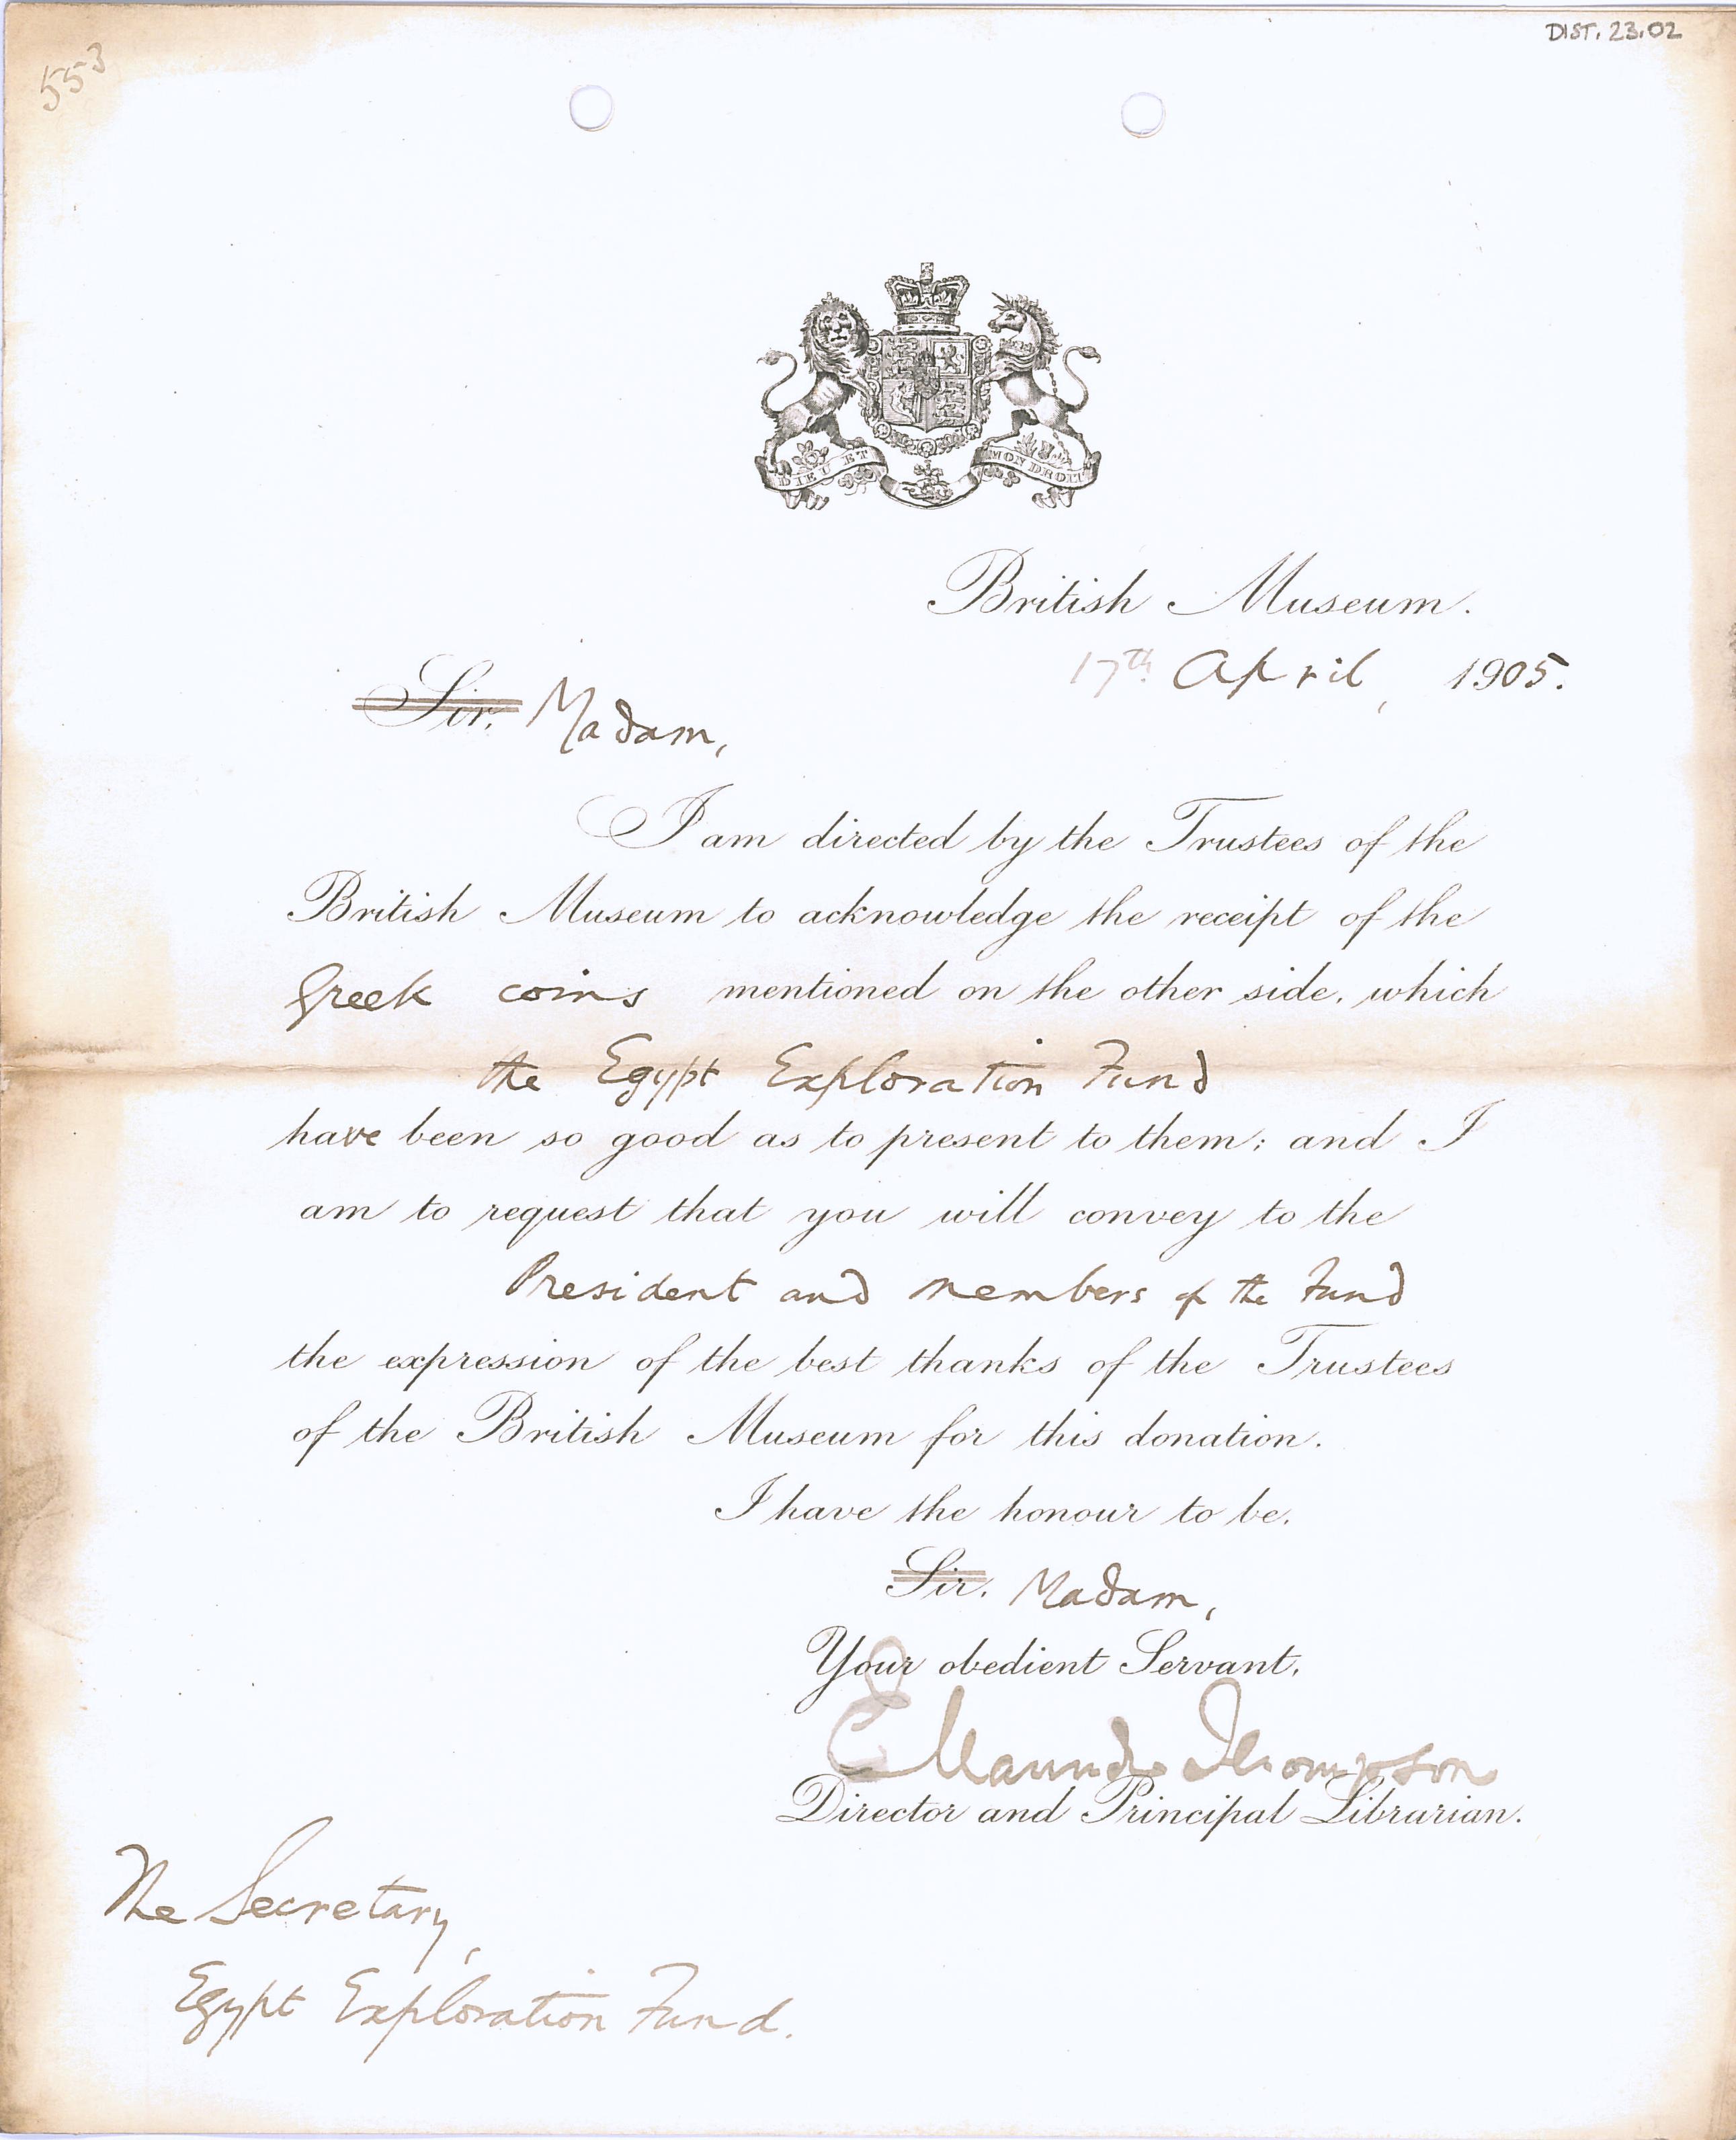 553
DIST. 23.02
DIEU ET MON DROIT
British Museum.
17th April, 1905.
Sir, Madam,
I am directed by the Trustees of the
British Museum to acknowledge the receipt of the
Greek coins mentioned on the other side, which
the Egypt Exploration Fund
have been so good as to present to them; and I
am to request that you will convey to the
President and members of the Fund
the expression of the best thanks of the Trustees
of the British Museum for this donation.
I have the honour to be,
Sir, Madam,
Your obedient Servant,
E Maunde Thompson
Director and Principal Librarian.
The Secretary,
Egypt Exploration Fund.